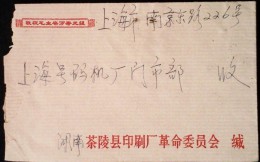 敬祝毛主席万寿无疆
上海市南京东路226号
上海号码机厂门市部 收
湖南茶陵县印刷厂革命委员会 缄